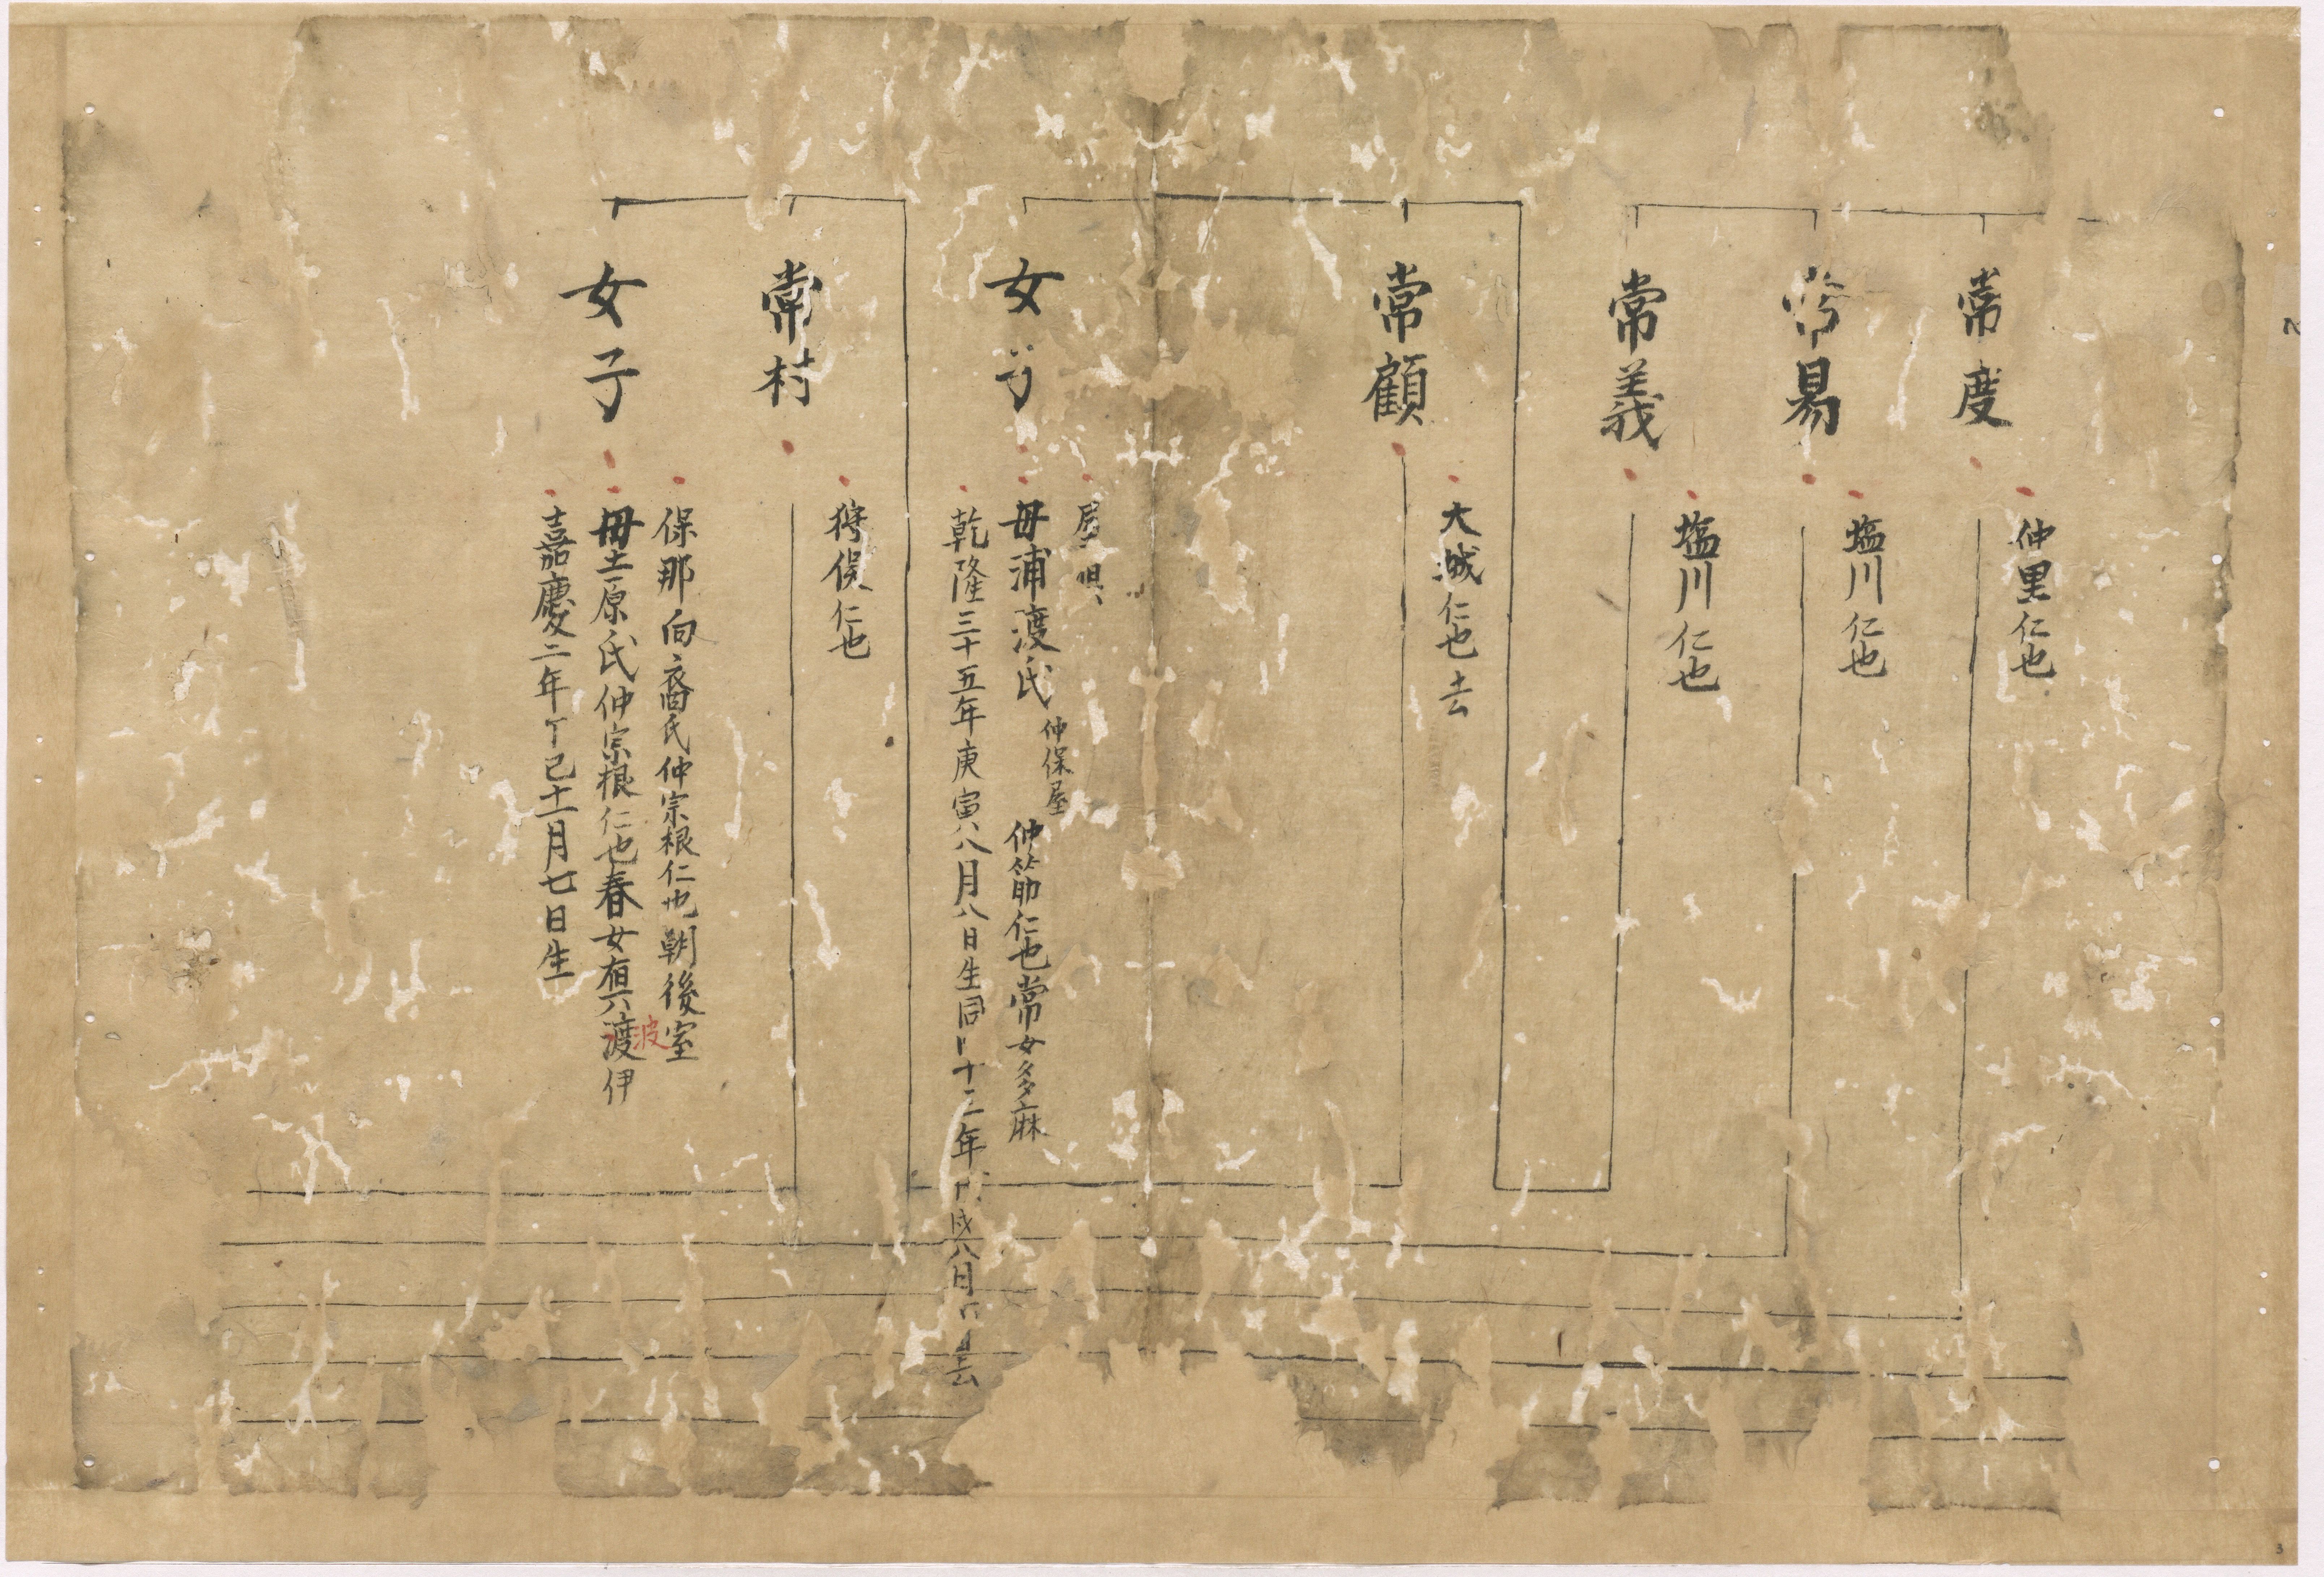 常度
仲里仁也
常易
塩川仁也
常義
塩川仁也
常顧
大城仁也去
女子
屋
母浦渡氏仲保屋仲筋仁也常女多麻
乾隆三十五年庚寅八月八日生同十二年八月去
常村
狩俣仁也
女子
保那向裔氏仲宗根仁也朝後室
母土原氏仲宗根仁也春女渡伊
波
嘉慶二年丁巳十一月七日生